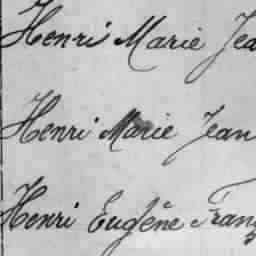 Henri Marie Jea
Henri Marie Jean
Henri Eugène Franç